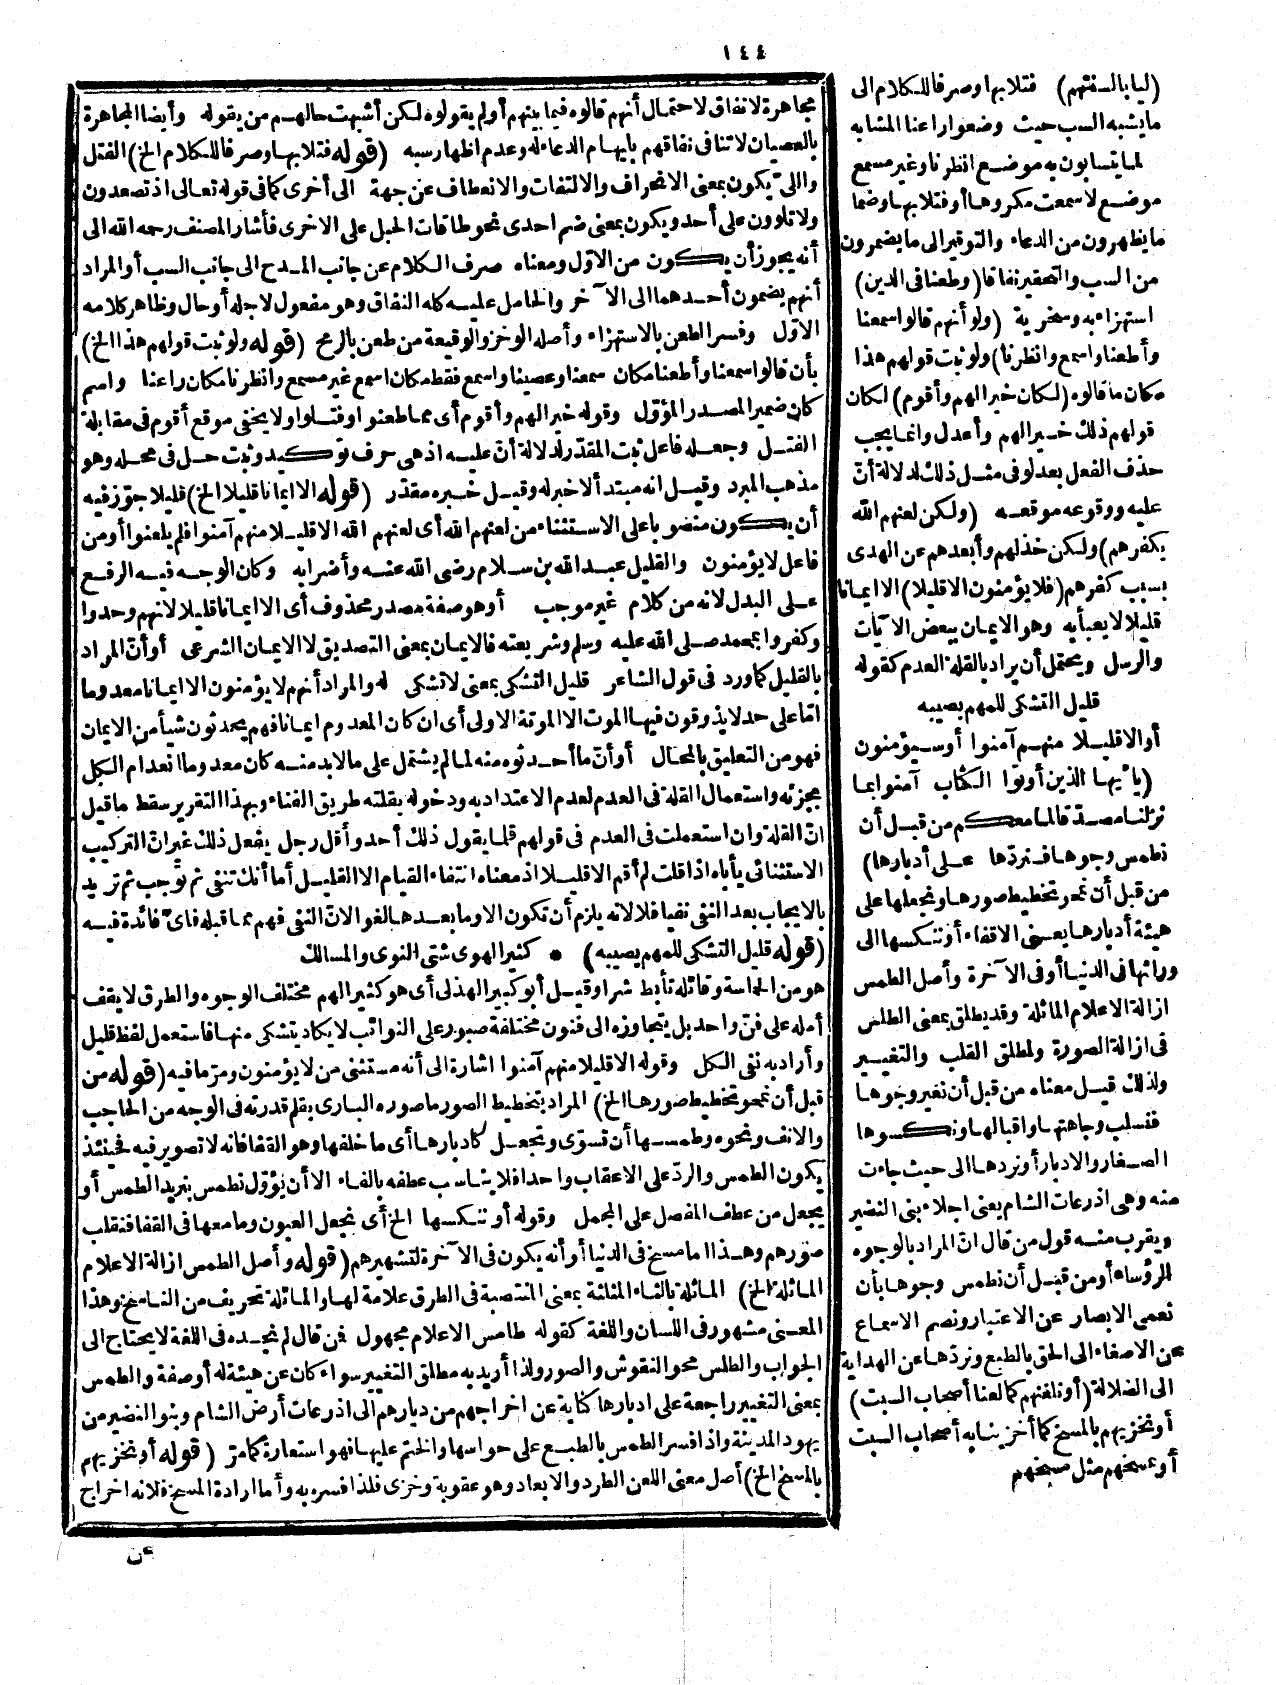 ١٤٤
(ليا بألسنتهم) فتلا بها وصرفا للكلام الى
ما يشبه السب حيث وضعوا راعنا المشابه
لما يتسابون به موضع انظرنا وغير مسمع
موضع لا سمعت مكروها أو فتلا بها وضما
ما يظهرون من الدعاء والتوقير الى ما يضمرون
من السب والتحقير نفاقا (وطعنا فى الدين)
استهزاء به وسخرية (ولو أنهم قالوا سمعنا
وأطعنا واسمع وانظرنا) ولو ثبت قولهم هذا
مكان ما قالوه (لكان خيرا لهم وأقوم) لكان
قولهم ذلك خيرا لهم وأعدل وانما يجب
حذف الفعل بعد لو فى مثل ذلك لدلالة أنّ
عليه ووقوعه موقعه (ولكن لعنهم الله
بكفرهم) ولكن خذلهم وأبعدهم عن الهدى
بسبب كفرهم (فلا يؤمنون الا قليلا) الا ايمانا
قليلا لا يعبأ به وهو الايمان ببعض الآيات
والرسل ويحتمل أن يراد بالقلة العدم كقوله
قليل التشكى للمهم يصيبه
أو الا قليلا منهم آمنوا أو سيؤمنون
(يا أيها الذين أوتوا الكتاب آمنوا بما
نزلنا مصدقا لما معكم من قبل أن
نطمس وجوها فنردّها على أدبارها)
من قبل أن نمحو تخطيط صورها ونجعلها على
هيئة أدبارها يعنى الاقفاء أو ننكسها الى
ورائها فى الدنيا أو فى الآخرة وأصل الطمس
ازالة الاعلام الماثلة وقد يطلق بمعنى الطلس
فى ازالة الصورة ولمطلق القلب والتغيير
ولذلك قيل معناه من قبل أن نغير وجوها
فنسلب وجاهتها واقبالها ونكسوها
الصغار والادبار أو نردها الى حيث جاءت
منه وهى اذرعات الشام يعنى اجلاء بنى النضير
ويقرب منه قول من قال انّ المراد بالوجوه
الرؤساء أو من قبل أن نطمس وجوها بأن
نعمى الابصار عن الاعتبار ونصم الاسماع
عن الاصغاء الى الحق بالطبع ونردّها عن الهداية
الى الضلالة (أو نلعنهم كما لعنا أصحاب السبت)
أو نخزيهم بالمسخ كما أخزينا به أصحاب السبت
أو نمسخهم مثل مسخهم
مجاهرة لا نفاق لاحتمال أنهم قالوه فيما بينهم أو لم يقولوه لكن أشبهت حالهم من يقوله وأيضا المجاهرة
بالعصيان لا تنافى نفاقهم بايهام الدعاء له وعدم اظهار سبه (قوله فتلا بها وصرفا للكلام الخ) الفتل
واللى يكون بمعنى الانحراف والالتفات والانعطاف عن جهة الى أخرى كما فى قوله تعالى اذ تصعدون
ولا تلوون على أحد ويكون بمعنى ضم احدى نحو طاقات الحبل على الاخرى فأشار المصنف رحمه الله الى
أنه يجوز أن يكون من الاوّل ومعناه صرف الكلام عن جانب المدح الى جانب السب أو المراد
أنهم يضمون أحدهما الى الآخر والحامل عليه كله النفاق وهو مفعول لاجله أو حال وظاهر كلامه
الاوّل وفسر الطعن بالاستهزاء وأصله الوخز والوقيعة من طعن بالرمح (قوله ولو ثبت قولهم هذا الخ)
بأن قالوا سمعنا وأطعنا مكان سمعنا وعصينا واسمع فقط مكان اسمع غير مسمع وانظرنا مكان راعنا واسم
كان ضمير المصدر المؤوّل وقوله خيرا لهم وأقوم أى مما طعنوا وفتلوا ولا يخفى موقع أقوم فى مقابلة
الفتل وجعله فاعل ثبت المقدّر لدلالة أنّ عليه اذ هى حرف توكيد وثبت حل فى محله وهو
مذهب المبرد وقيل انه مبتدأ لا خبر له وقيل خبره مقدّر (قوله الا ايمانا قليلا الخ) قليلا جوّز فيه
أن يكون منصوبا على الاستثناء من لعنهم الله أى لعنهم الله الا قليلا منهم آمنوا فلم يلعنوا أو من
فاعل لا يؤمنون والقليل عبد الله بن سلام رضى الله عنه وأضرابه وكان الوجه فيه الرفع
على البدل لانه من كلام غير موجب أو هو صفة مصدر محذوف أى الا ايمانا قليلا لانهم وحدوا
وكفروا بمحمد صلى الله عليه وسلم وشريعته فالايمان بمعنى التصديق لا الايمان الشرعى أو أنّ المراد
بالقليل كما ورد فى قول الشاعر قليل التشكى بمعنى لا تشكى له والمراد أنهم لا يؤمنون الا ايمانا معدوما
امّا على حد لا يذوقون فيها الموت الا الموتة الاولى أى ان كان المعدوم ايمانا فهم يحدثون شيأ من الايمان
فهو من التعليق بالمحال أو أنّ ما أحدثوه منه لما لم يشتمل على ما لا بد منه كان معدوما انعدام الكل
بجزئه واستعمال القلة فى العدم لعدم الاعتداد به ودخوله بقلته طريق الفناء وبهذا التقرير سقط ما قيل
انّ القلة وان استعملت فى العدم فى قولهم قلما يقول ذلك أحد وأقل رجل يفعل ذلك غير انّ التركيب
الاستثنائى يأباه اذا قلت لم أقم الا قليلا اذ معناه انتفاء القيام الا القليل أما أنك تنفى ثم توجب ثم تريد
بالايجاب بعد النفى نفيا فلا لانه يلزم أن تكون الا وما بعدها لغوا لانّ النفى فهم مما قبله فأىّ فائدة فيه
(قوله قليل التشكى للمهم يصيبه) * كثير الهوى شتى النوى والمسالك
هو من الحماسة وقائله تأبط شرا وقيل أبو كبير الهذلى أى هو كثير الهم مختلف الوجوه والطرق لا يقف
أمله على فنّ واحد بل يتجاوزه الى فنون مختلفة صبور على النوائب لا يكاد يتشكى منها فاستعمل لفظ قليل
وأراد به نفى الكل وقوله الا قليلا منهم آمنوا اشارة الى أنه مستثنى من لا يؤمنون ومرّ ما فيه (قوله من
قبل أن نمحو تخطيط صورها الخ) المراد بتخطيط الصور ما صوره البارى بقلم قدرته فى الوجه من الحاجب
والانف ونحوه وطمسها أن تسوّى وتجعل كأدبارها أى ما خلفها وهو القفا فانه لا تصوير فيه فحينئذ
يكون الطمس والردّ على الاعقاب واحدا فلا يناسب عطفه بالفاء الا أن يؤوّل نطمس بنريد الطمس أو
يجعل من عطف المفصل على المجمل وقوله أو ننكسها الخ أى نجعل العيون وما معها فى القفا فنقلب
صورهم وهذا اما مسخ فى الدنيا أو أنه يكون فى الآخرة لتشهيرهم (قوله وأصل الطمس ازالة الاعلام
الماثلة الخ) الماثلة بالثاء المثلثة بمعنى المنتصبة فى الطرق علامة لها والمائلة تحريف من الناسخ وهذا
المعنى مشهور فى اللسان واللغة كقوله طامس الاعلام مجهول فمن قال لم نجده فى اللغة لا يحتاج الى
الجواب والطلس محو النقوش والصور ولذا أريد به مطلق التغيير سواء كان عن هيئة له أو صفة والطمس
بمعنى التغيير راجعة على ادبارها كناية عن اخراجهم من ديارهم الى اذرعات أرض الشام وبنو النضير من
يهود المدينة واذا فسر الطمس بالطبع على حواسها والختم عليها فهو استعارة كما مرّ (قوله أو نخزيهم
بالمسخ الخ) أصل معنى اللعن الطرد والابعاد وهو عقوبة وخزى فلذا فسره به وأما ارادة المسخ فلانه اخراج
عن